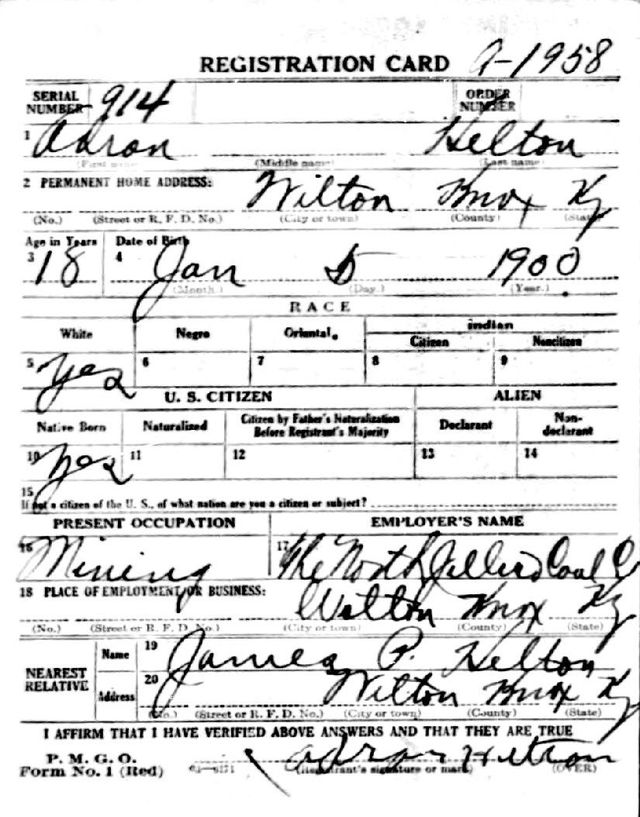 REGISTRATION CARD A-1958
SERIAL NUMBER 914 ORDER NUMBER
1 Aaron Helton
(First name) (Middle name) (Last name)
2 PERMANENT HOME ADDRESS: Wilton Knox Ky
(No.) (Street or R. F. D. No.) (City or town) (County) (State)
Age in Years Date of Birth
3 18 4 Jan 5 1900
(Month.) (Day.) (Year.)
RACE
White Negro Oriental. Indian
Citizen Noncitizen
5 Yes 6 7 8 9
U. S. CITIZEN ALIEN
Native Born Naturalized Citizen by Father's Naturalization Before Registrant's Majority Declarant Non-declarant
10 Yes 11 12 13 14
15
If not a citizen of the U. S., of what nation are you a citizen or subject?
PRESENT OCCUPATION EMPLOYER'S NAME
16 Mining 17 The North Jellico Coal C
18 PLACE OF EMPLOYMENT OR BUSINESS: Wilton Knox Ky
(No.) (Street or R. F. D. No.) (City or town) (County) (State)
NEAREST RELATIVE Name 19 James P. Helton
Address 20 Wilton Knox Ky
(No.) (Street or R. F. D. No.) (City or town) (County) (State)
I AFFIRM THAT I HAVE VERIFIED ABOVE ANSWERS AND THAT THEY ARE TRUE
P. M. G. O.
Form No. 1 (Red) (Registrant's signature or mark) (OVER)